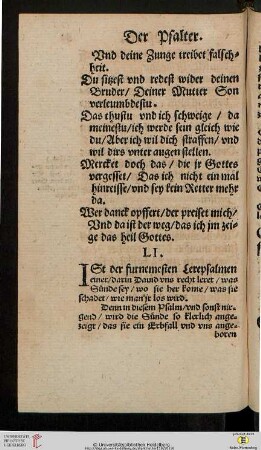 Der Psalter.
Vnd deine Zunge treibet falsch-
heit.
Du sitzest vnd redest wider deinen
Bruder/ Deiner Mutter Son
verleumbdestu.
Das thustu vnd ich schweige / da
meinestu/ich werde sein gleich wie
du/Aber ich wil dich straffen/ vnd
wil dirs vnter augen stellen.
Mercket doch das / die jr Gottes
vergesset/ Das ich nicht ein mal
hinreisse/vnd sey kein Retter mehr
da.
Wer danck opffert/der preiset mich/
Vnd da ist der weg/das ich jm zei-
ge das heil Gottes.
LI.
ISt der furnemesten Lerepsalmen
einer/darin Dauid vns recht leret / was
Sünde sey/ wo sie her kome / was sie
schadet/ wie man jr los wird.
Denn in diesem Psalm/vnd sonst nir-
gend/ wird die Sünde so klerlich ange-
zeigt/ das sie ein Erbfall vnd vns ange-
boren